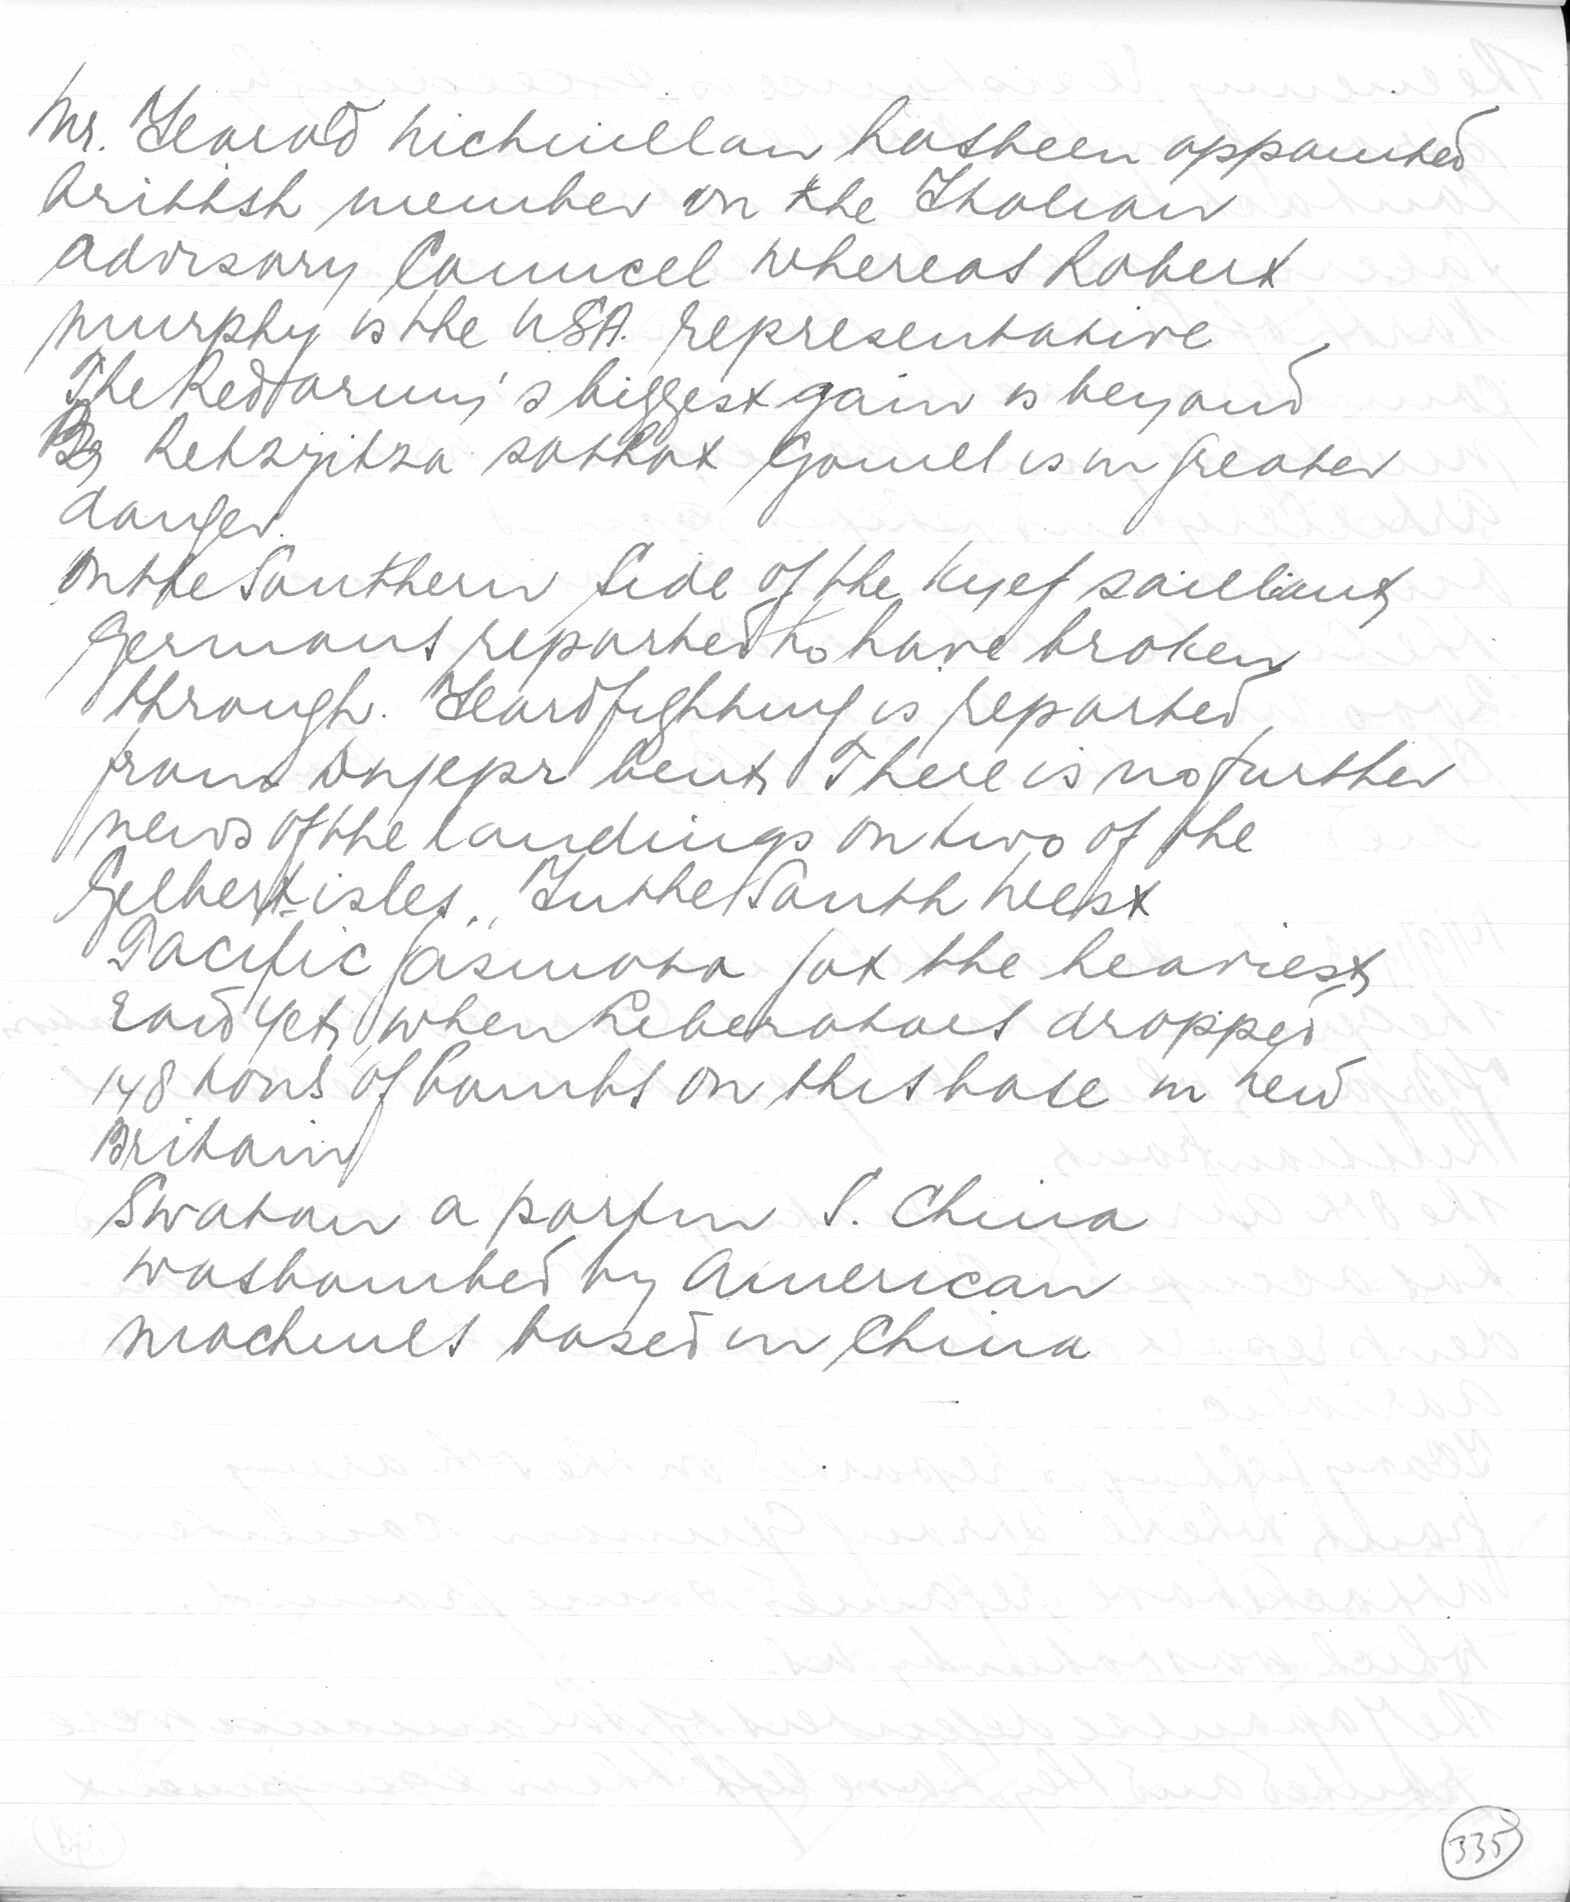 Mr. Harold Michmillan hasbeen appointed
brittish member on the Italian
advisory Councel whereas Robert
Murphy is the USA. representative
The Red army's biggest gain is beyond
Retzyitza sothat Gomel is in greater
danger.
On the Southern Side of the Kyef sailliant
Germans reported to have broken
through. Hardfighting is reported
from Dnjepr bent, There is no further
news of the landings on two of the
Gelbert-isles. In the South West
Pacific Gasmata got the heaviest
raid yet, when Liberators dropped
148 tons of bombs on this base in New
Britain
Swatau a port in S. China
wasbombed by American
machines based in China
335